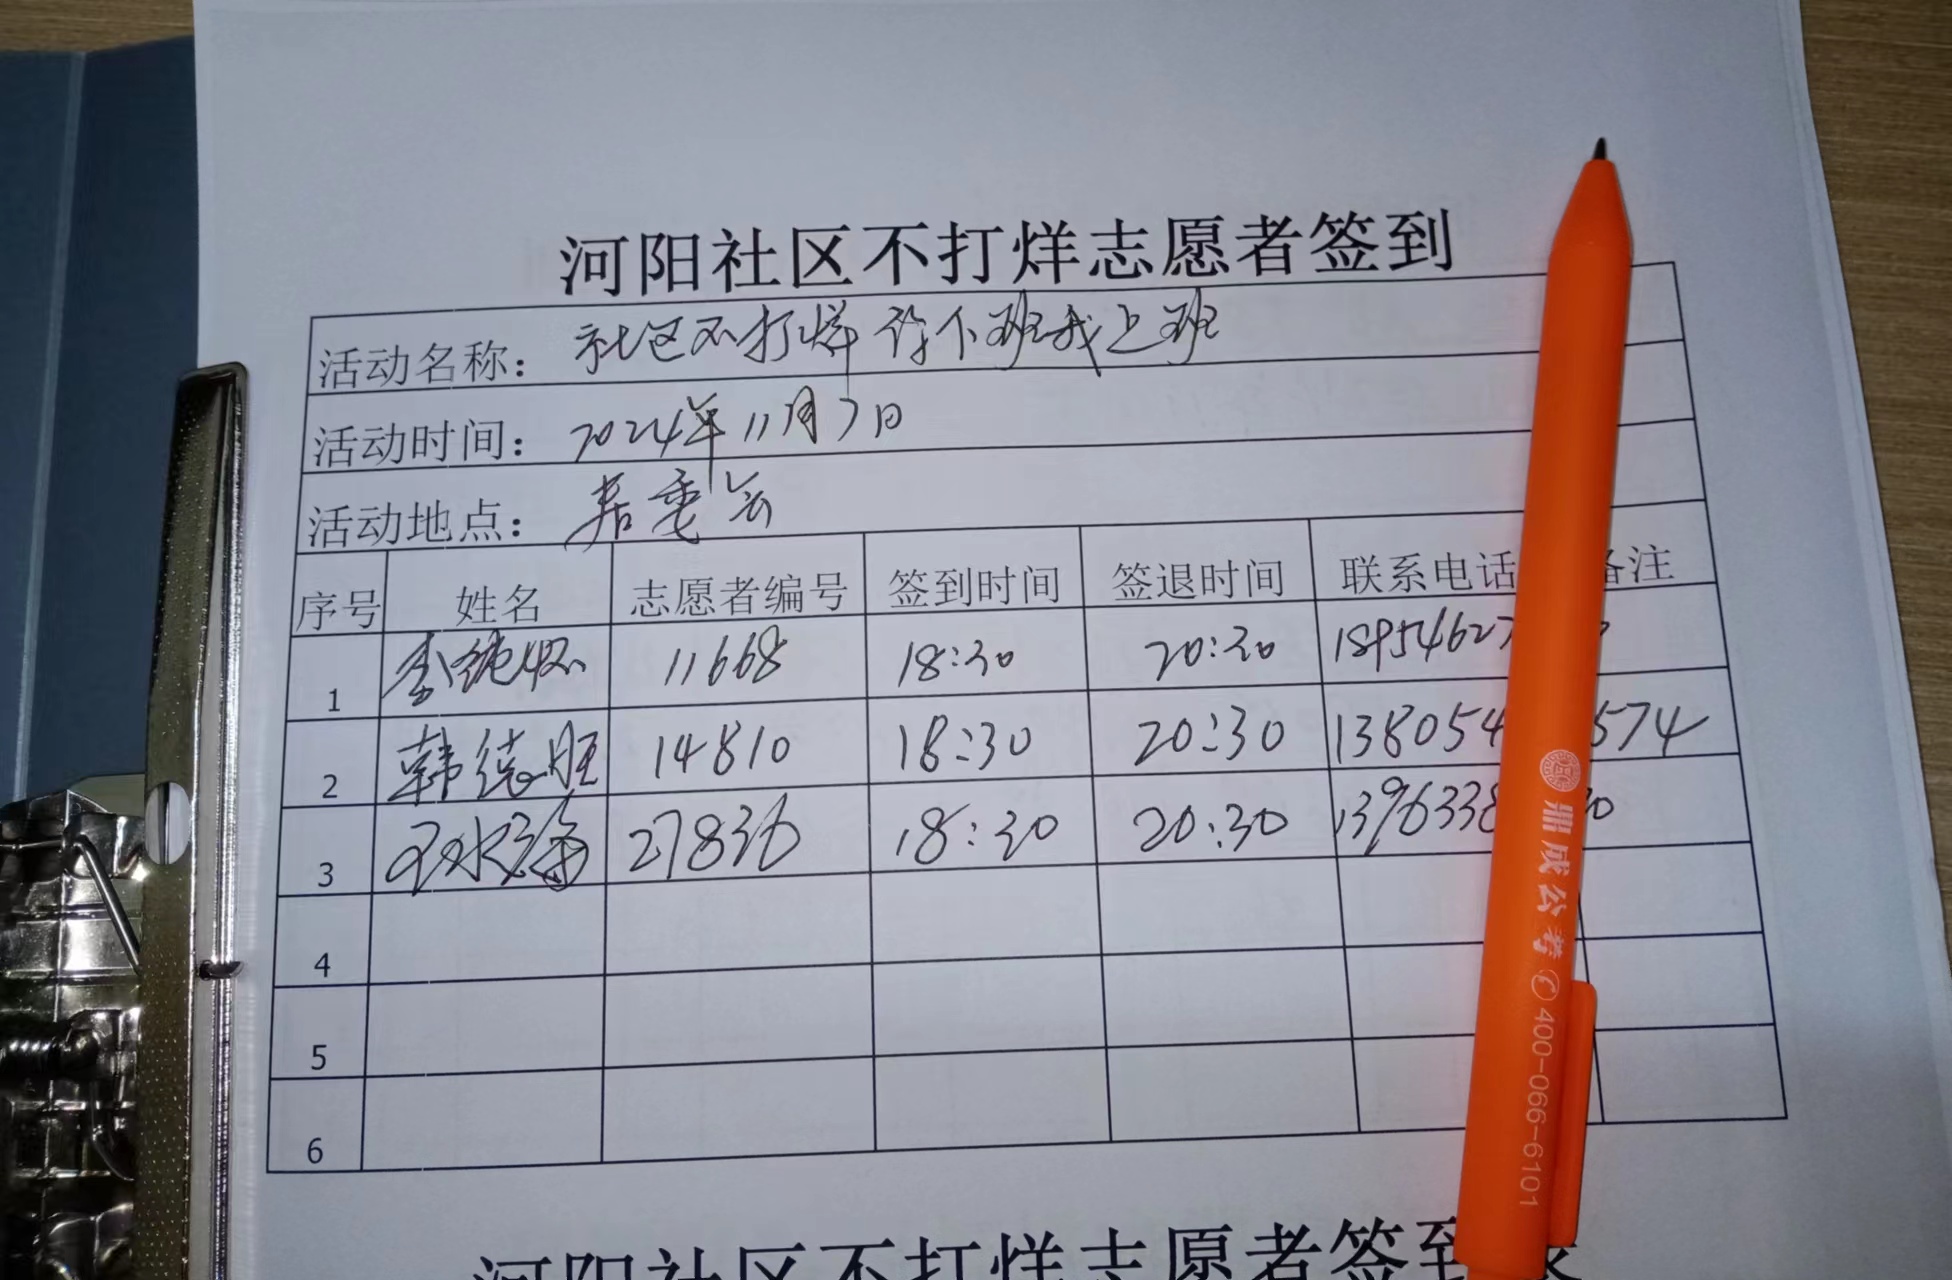 河阳社区不打烊志愿者签到
活动名称: 社区不打烊 你下班我上班
活动时间: 2024年11月7日
活动地点: 居委会
序号 姓名 志愿者编号 签到时间 签退时间 联系电话 备注
1 李纯怀 11668 18:30 20:30 18954627
2 韩德旺 14810 18:30 20:30 138054 574
3 27836 18:30 20:30 1396338 30
4
5
6
鼎成公考 400-066-6101
河阳社区不打烊志愿者签到表